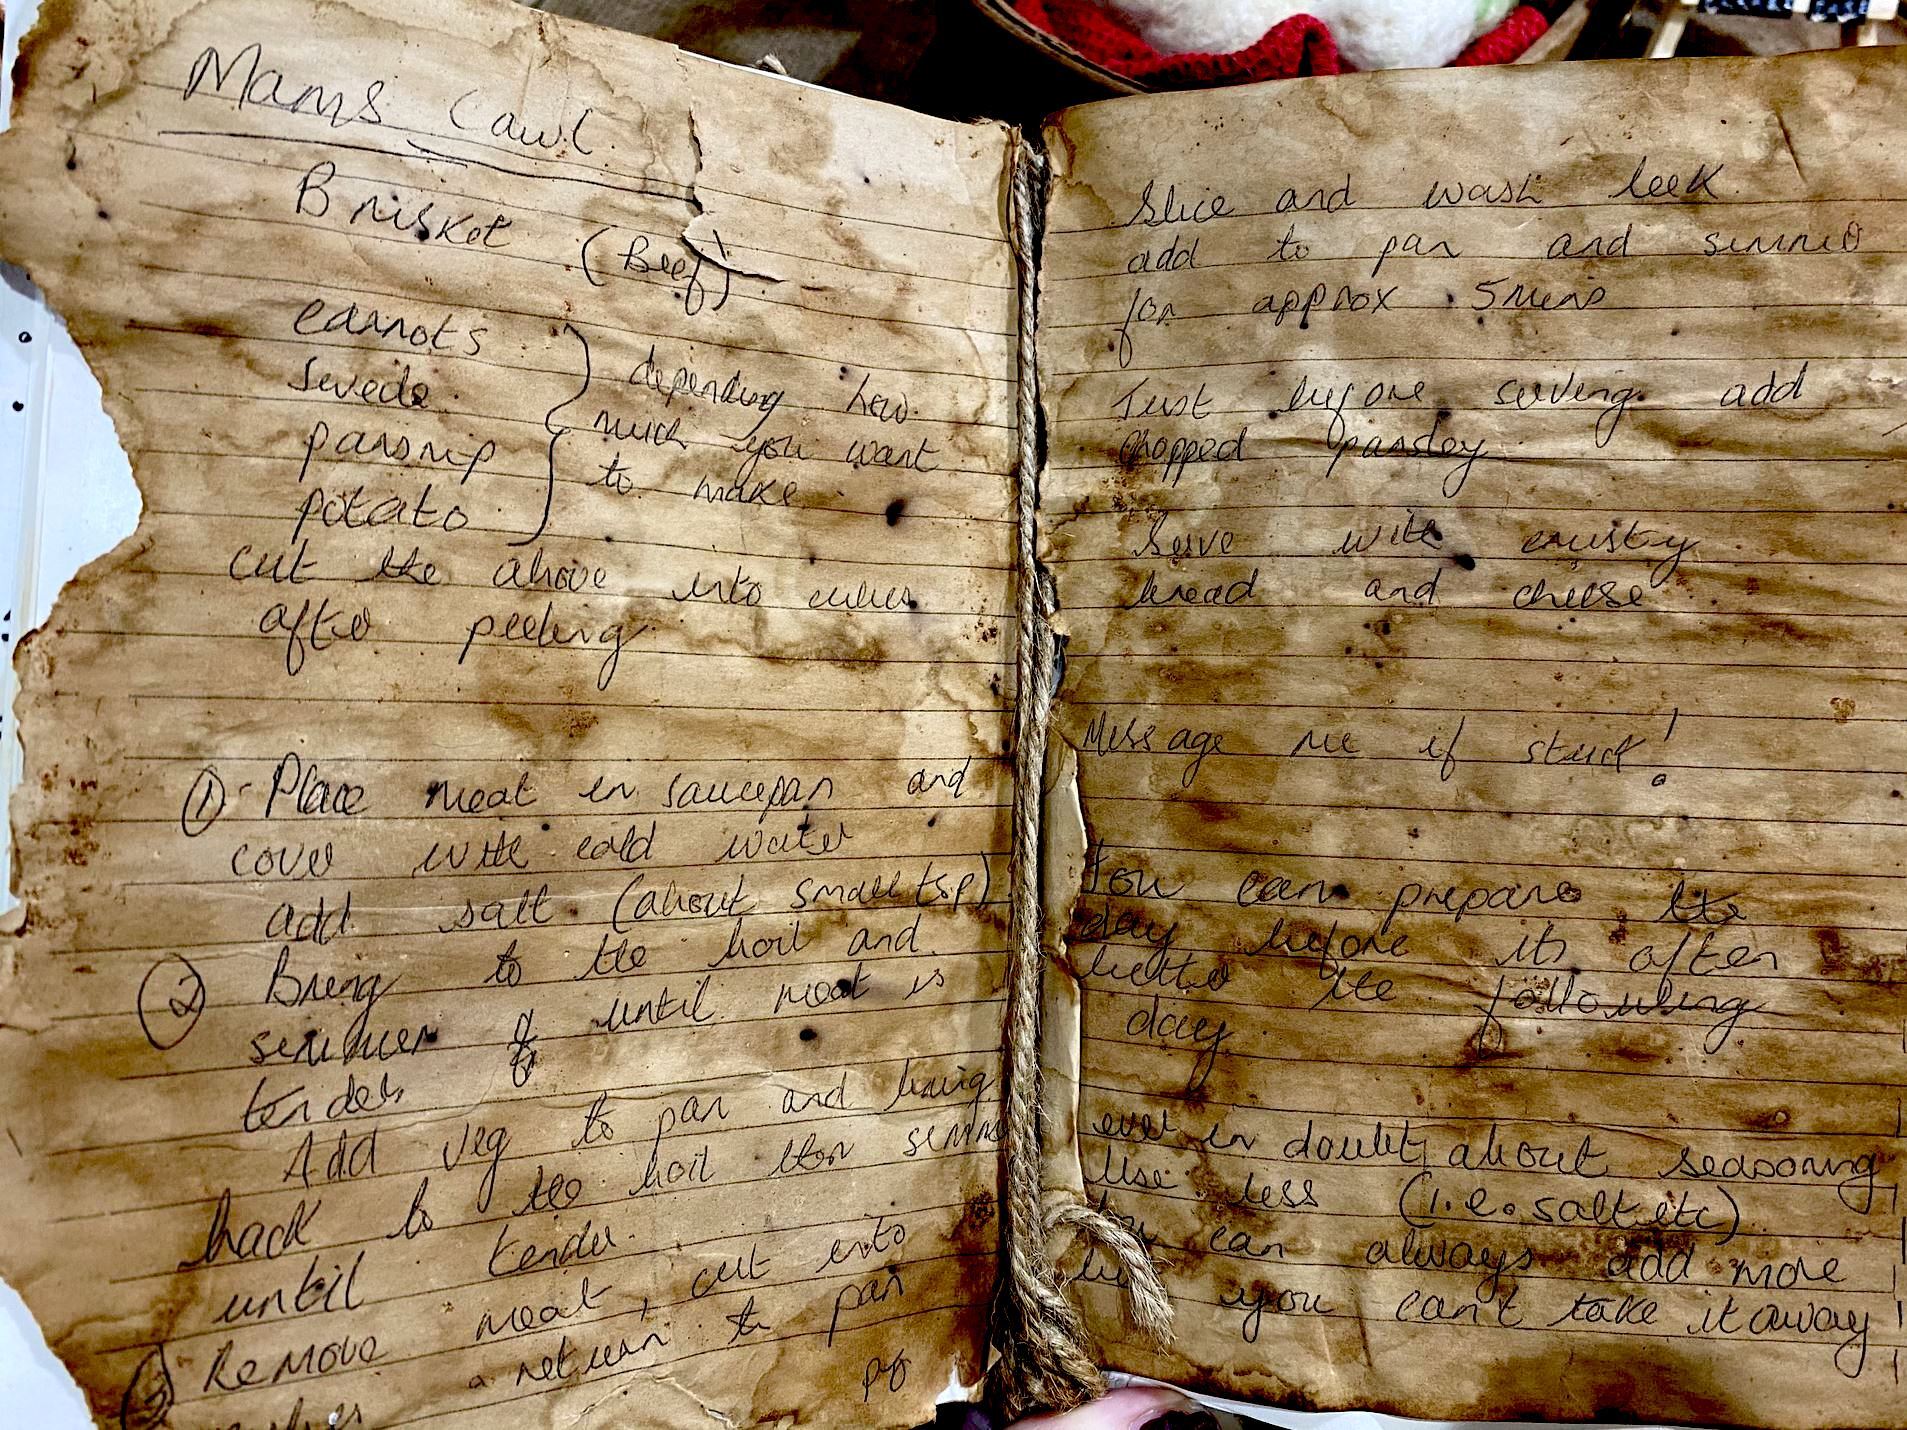 Mams Cawl
Brisket (Beef)
carrots
swede
parsnip
potato
depending how
much you want
to make
cut the above into cubes
after peeling
① Place meat in saucepan and
cover with cold water
add salt (about small tsp)
② Bring to the boil and
simmer until meat is
tender
Add veg to pan and bring
back to the boil then simm
until tender
③ Remove meat, cut into
return to pan
Slice and wash leek
add to pan and simmer
for approx 5 mins
Just before serving add
chopped parsley
Serve with crusty
bread and cheese
Message me if stuck!
You can prepare the
day before its often
better the following
day
ever in doubt about seasoning
Use less (i.e. salt etc)
You can always add more
you can't take it away